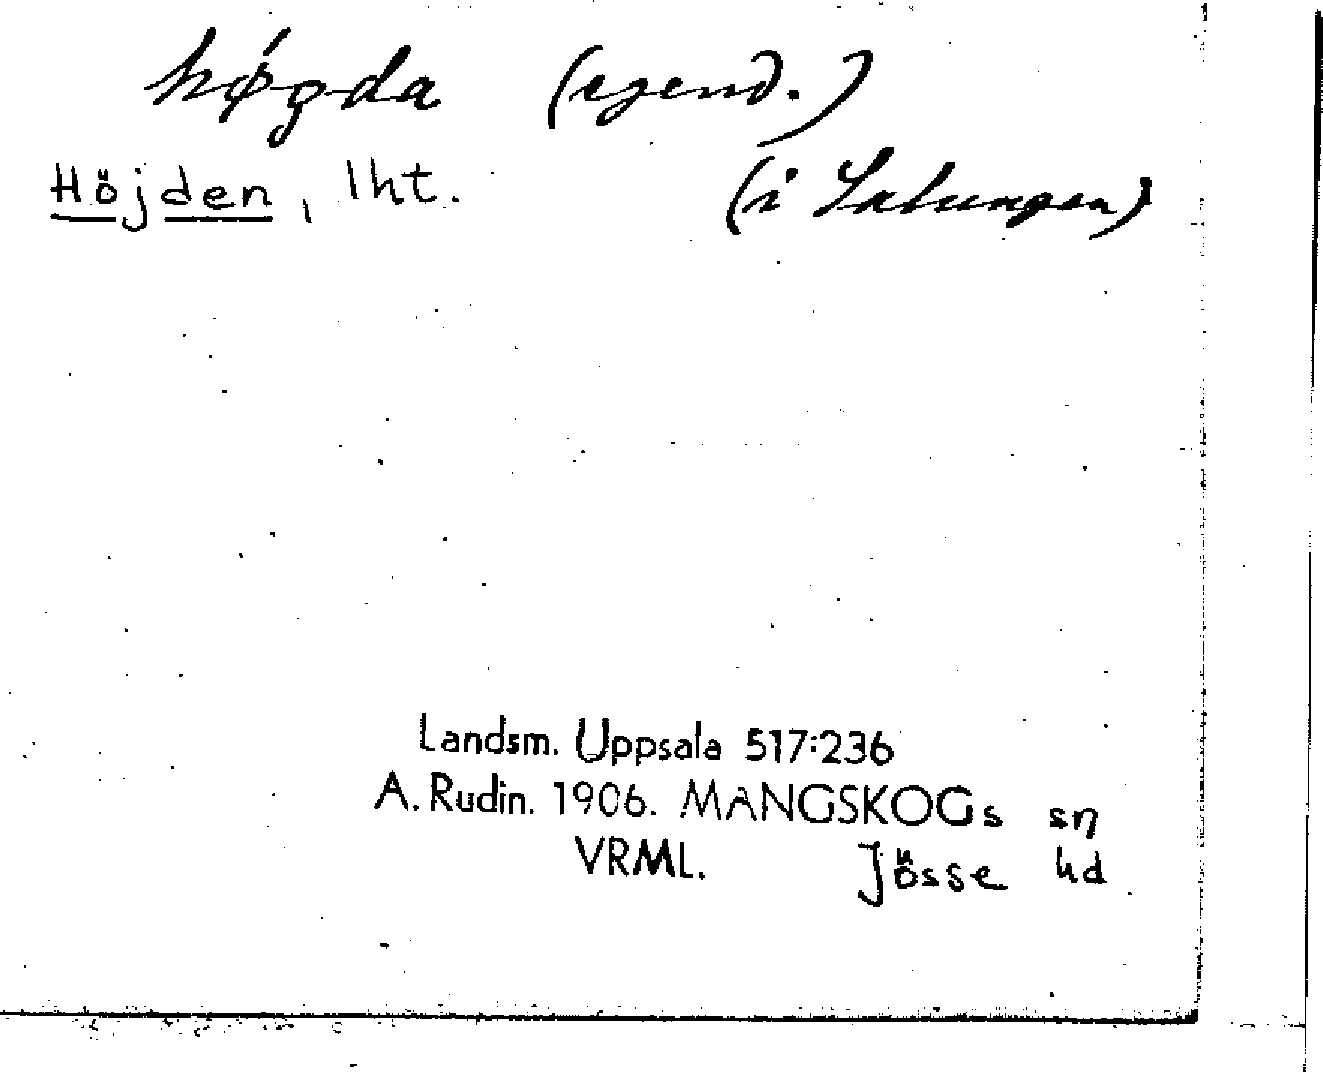 høgda (egend.)
Höjden, lht. (i Salungen)
Landsm. Uppsala 517:236
A. Rudin. 1906. MANGSKOGs sn
VRML. Jösse hd